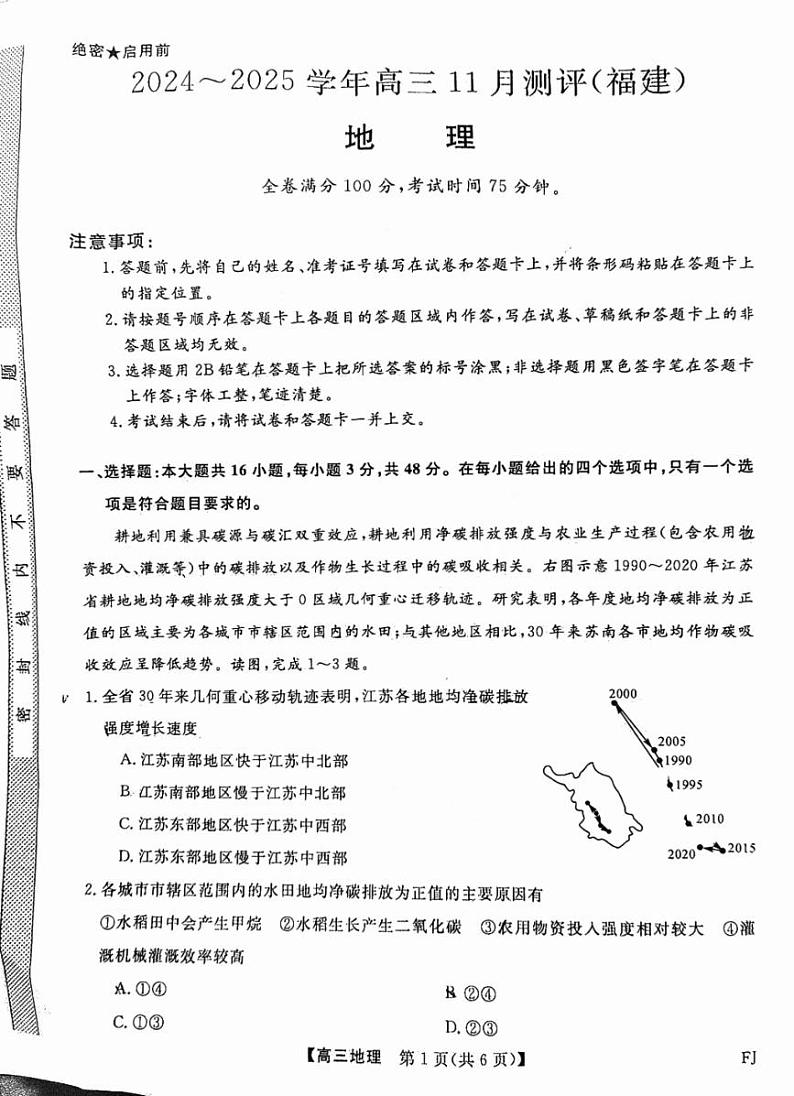 绝密★启用前
2024～2025学年高三11月测评(福建)
地 理
全卷满分100分,考试时间75分钟。
注意事项:
1.答题前,先将自己的姓名、准考证号填写在试卷和答题卡上,并将条形码粘贴在答题卡上
的指定位置。
2.请按题号顺序在答题卡上各题目的答题区域内作答,写在试卷、草稿纸和答题卡上的非
答题区域均无效。
3.选择题用2B铅笔在答题卡上把所选答案的标号涂黑;非选择题用黑色签字笔在答题卡
上作答;字体工整,笔迹清楚。
4.考试结束后,请将试卷和答题卡一并上交。
一、选择题:本大题共16小题,每小题3分,共48分。在每小题给出的四个选项中,只有一个选
项是符合题目要求的。
耕地利用兼具碳源与碳汇双重效应,耕地利用净碳排放强度与农业生产过程(包含农用物
资投入、灌溉等)中的碳排放以及作物生长过程中的碳吸收相关。右图示意1990～2020年江苏
省耕地地均净碳排放强度大于0区域几何重心迁移轨迹。研究表明,各年度地均净碳排放为正
值的区域主要为各城市市辖区范围内的水田;与其他地区相比,30年来苏南各市地均作物碳吸
收效应呈降低趋势。读图,完成1～3题。
v 1.全省30年来几何重心移动轨迹表明,江苏各地地均净碳排放
强度增长速度
A.江苏南部地区快于江苏中北部
B.江苏南部地区慢于江苏中北部
C.江苏东部地区快于江苏中西部
D.江苏东部地区慢于江苏中西部
2000
2005
1990
1995
2010
2020
2015
2.各城市市辖区范围内的水田地均净碳排放为正值的主要原因有
①水稻田中会产生甲烷 ②水稻生长产生二氧化碳 ③农用物资投入强度相对较大 ④灌
溉机械灌溉效率较高
A.①④
B.②④
C.①③
D.②③
【高三地理 第1页(共6页)】
FJ
密封线内不要答题